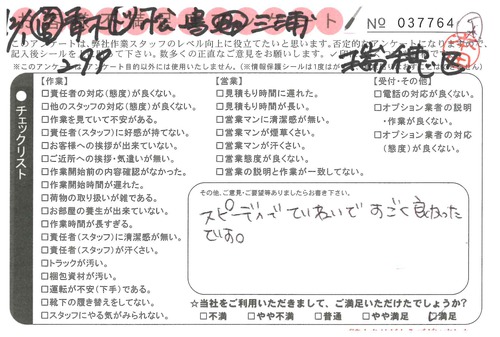 No 037764
このアンケートは、弊社作業スタッフのレベル向上に役立てたいと思います。否定的なアンケートになりますので、
記入後シールを
299
チェックリスト
【作業】
□責任者の対応(態度)が良くない。
□他のスタッフの対応(態度)が良くない。
□作業を見ていて不安がある。
□責任者(スタッフ)に好感が持てない。
□お客様への挨拶が出来ていない。
□ご近所への挨拶・気遣いが無い。
□作業開始前の内容確認がなかった。
□作業開始時間が遅れた。
□荷物の取り扱いが雑である。
□お部屋の養生が出来ていない。
□作業時間が長すぎる。
□責任者(スタッフ)に清潔感が無い。
□責任者(スタッフ)が汗くさい。
□トラックが汚い。
□梱包資材が汚い。
□運転が不安(下手)である。
□靴下の履き替えをしてない。
□スタッフにやる気がみられない。
【営業】
□見積もり時間に遅れた。
□見積もり時間が長い。
□営業マンに清潔感が無い。
□営業マンが煙草くさい。
□営業マンが汗くさい。
□営業態度が良くない。
□営業の説明と作業が一致してない。
【受付・その他】
□電話の対応が良くない。
□オプション業者の説明
・作業が良くない。
□オプション業者の対応
(態度)が良くない。
その他、ご意見・ご要望等ありましたらお書き下さい。
スピーディでていねいですごく良かった
です。
☆当社をご利用いただきまして、ご満足いただけたでしょうか?
□不満 □やや不満 □普通 □やや満足 ☑満足